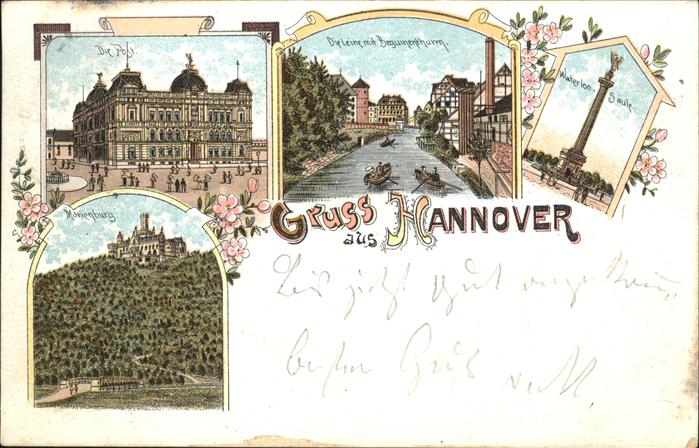 Die Post.
Die Leine mit Beguinenthurm.
Waterloo-Säule.
Marienburg.
Gruss
aus HANNOVER
Bis jetzt gut
besten Gruß